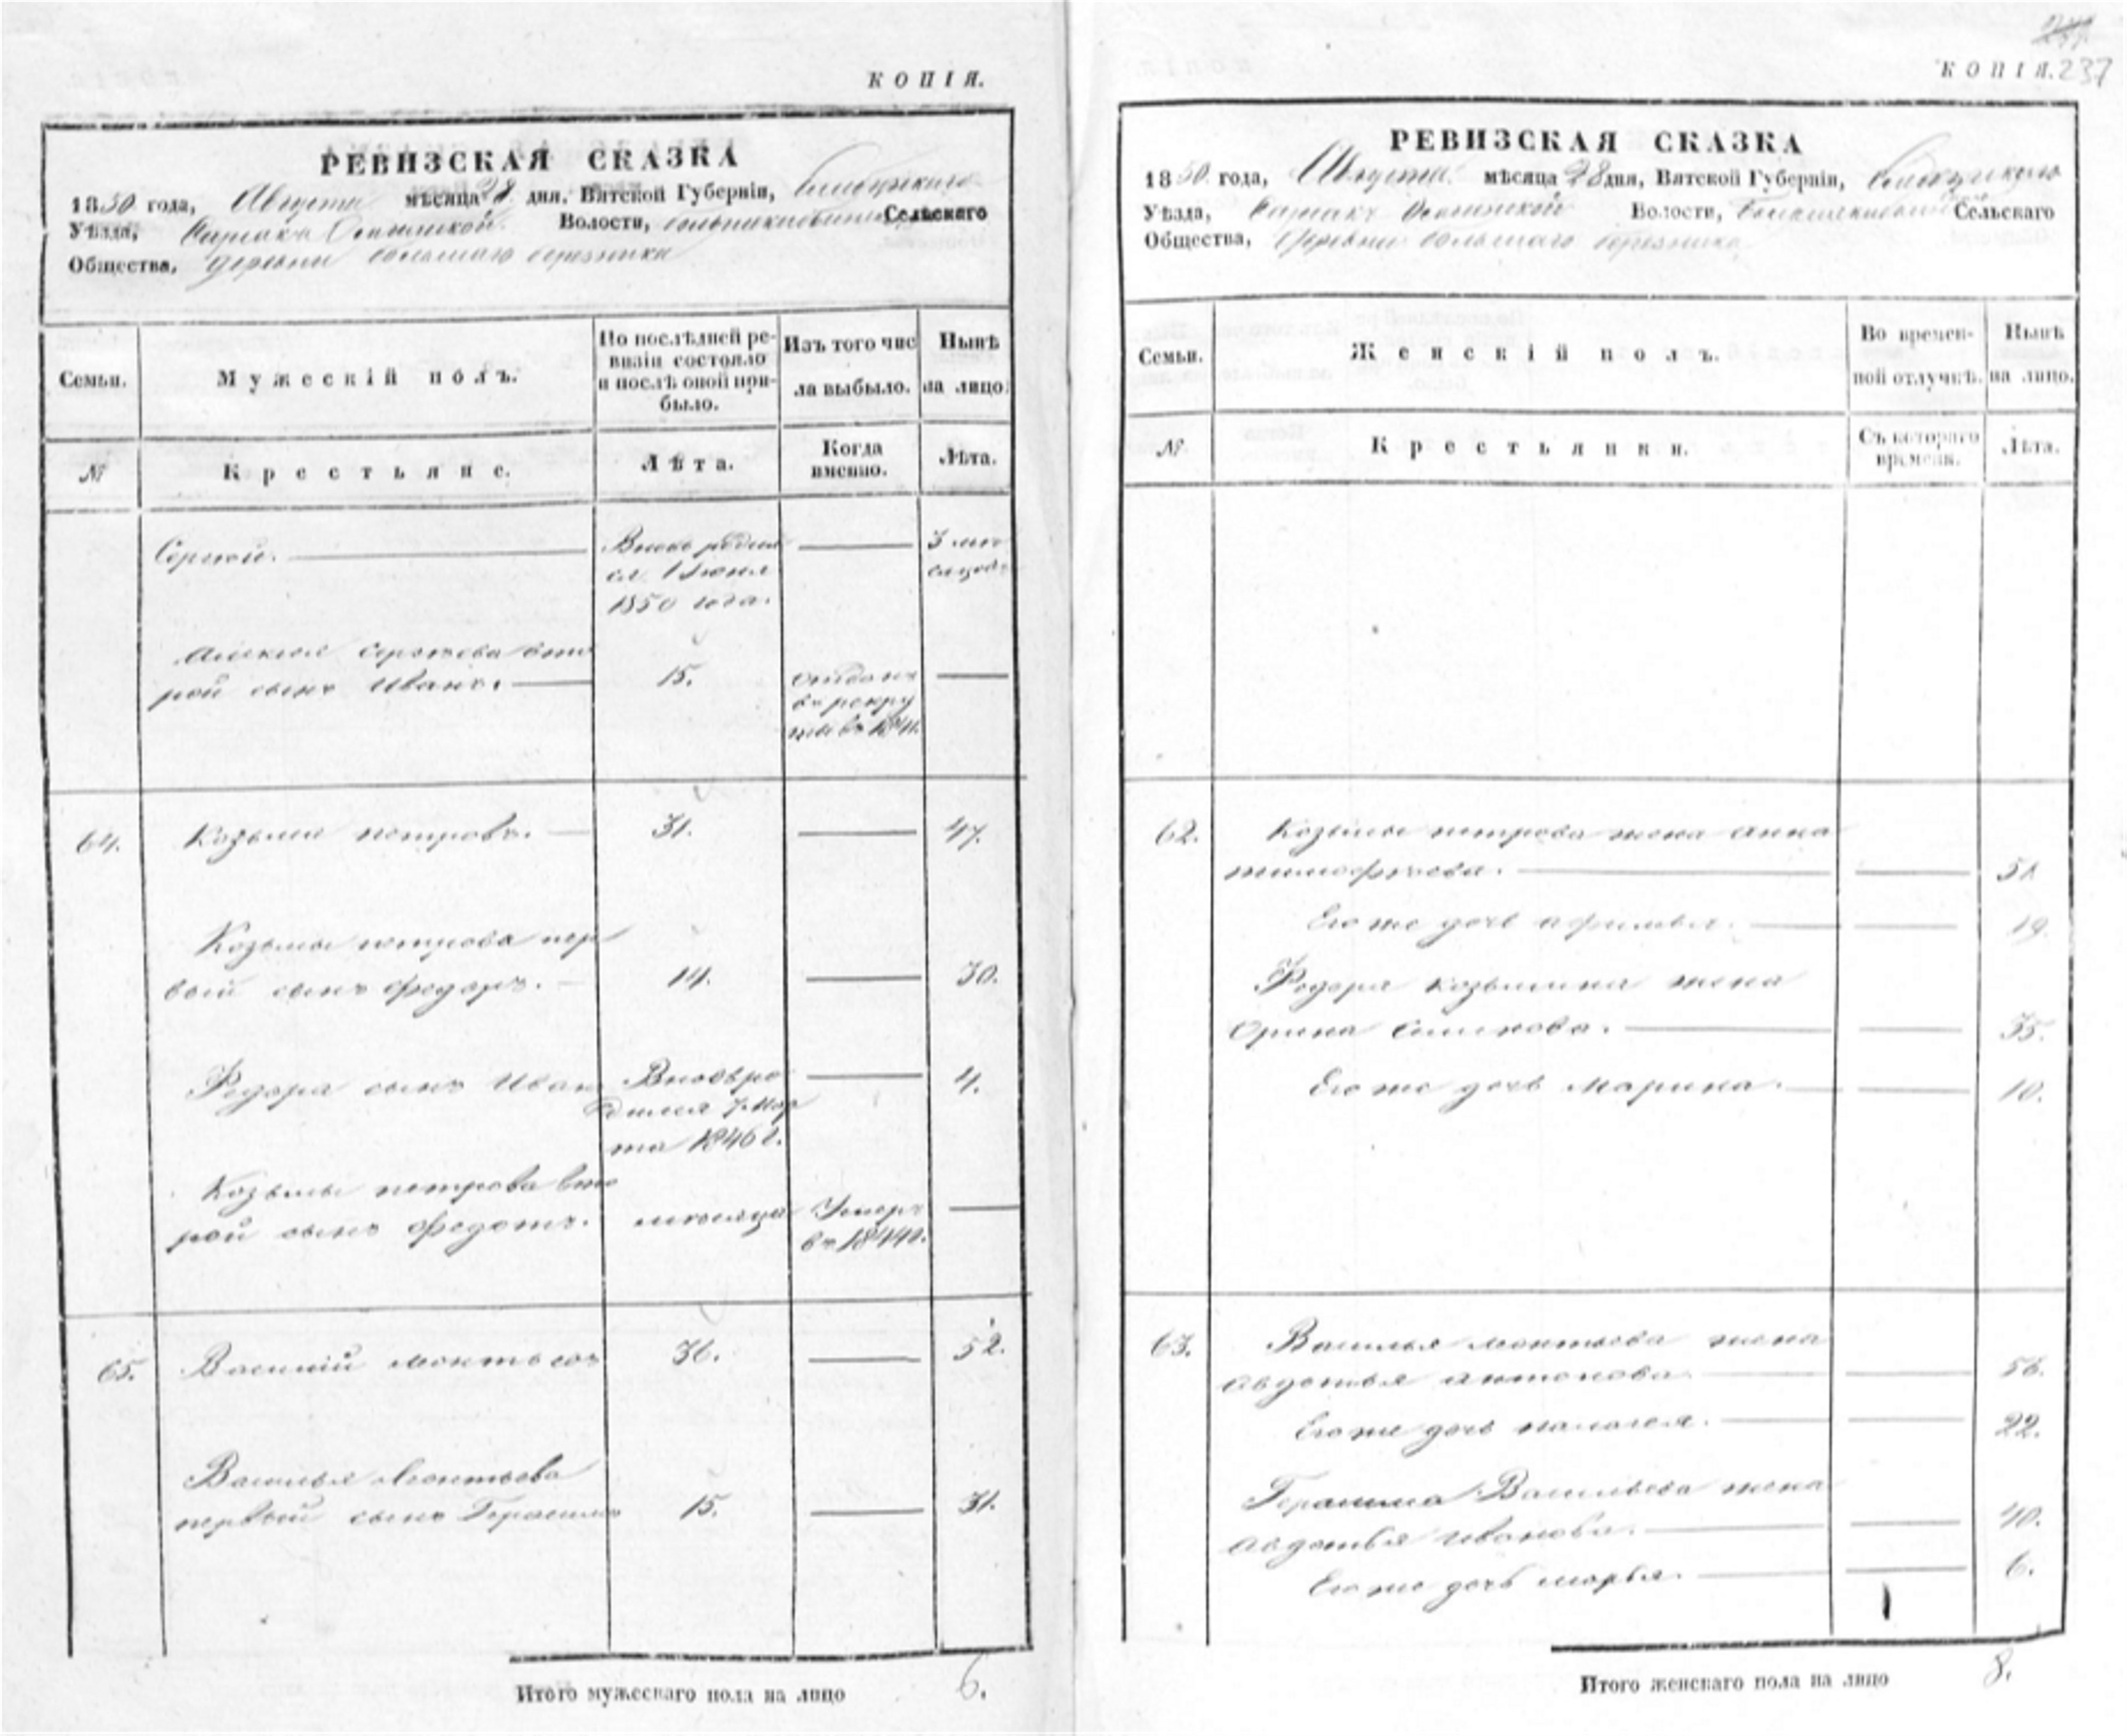 КОПІЯ.
РЕВИЗСКАЯ СКАЗКА
1850 года, Августа мѣсяца 28 дня, Вятской Губерніи,
Уѣзда, Волости, Сельскаго
Общества, деревни большаго березника
Семьи.
Мужескій полъ.
По послѣдней ре-
визіи состояло
и послѣ оной при-
было.
Изъ того чис
ла выбыло.
Нынѣ
на лицо.
№
Крестьяне.
Лѣта.
Когда
именно.
Лѣта.
Сергей.
Вновь родил
ся 1 Июня
1850 года.
3 мѣ
сяцовъ
Алексея Сергеева вто
рой сынъ Иванъ.
15.
отданъ
въ рекру
ты въ
64.
Козьма петровъ.
31.
47.
Козьмы петрова пер
вый сынъ федоръ.
14.
30.
Федора сынъ Иван
Вновьро
дился 7 Мар
та 1846 г.
4.
Козьмы петрова вто
рой сынъ федотъ.
мѣсяца
Умеръ
въ 1844г.
65.
Василий леонтьевъ
36.
52.
Василья Леонтьева
первый сынъ Герасимъ
15.
31.
Итого мужескаго пола на лицо 6.
КОПІЯ. 237
РЕВИЗСКАЯ СКАЗКА
1850 года, Августа мѣсяца 28 дня, Вятской Губерніи,
Уѣзда, Волости, Сельскаго
Общества, деревни большаго березника
Семьи.
Женскій полъ.
Во времен-
ной отлучкѣ.
Нынѣ
на лицо.
№
Крестьянки.
Съ котораго
времени.
Лѣта.
62.
Козьмы петрова жена анна
тимофѣева.
51.
Его же дочь афимья.
19.
Федора козьмина жена
Орина Семенова.
35.
Его же дочь марина.
10.
63.
Василья леонтьева жена
авдотья антонова
56.
Его же дочь палагея.
22.
Герасима Васильева жена
авдотья иванова.
40.
Его же дочь марья.
6.
Итого женскаго пола на лицо 8.